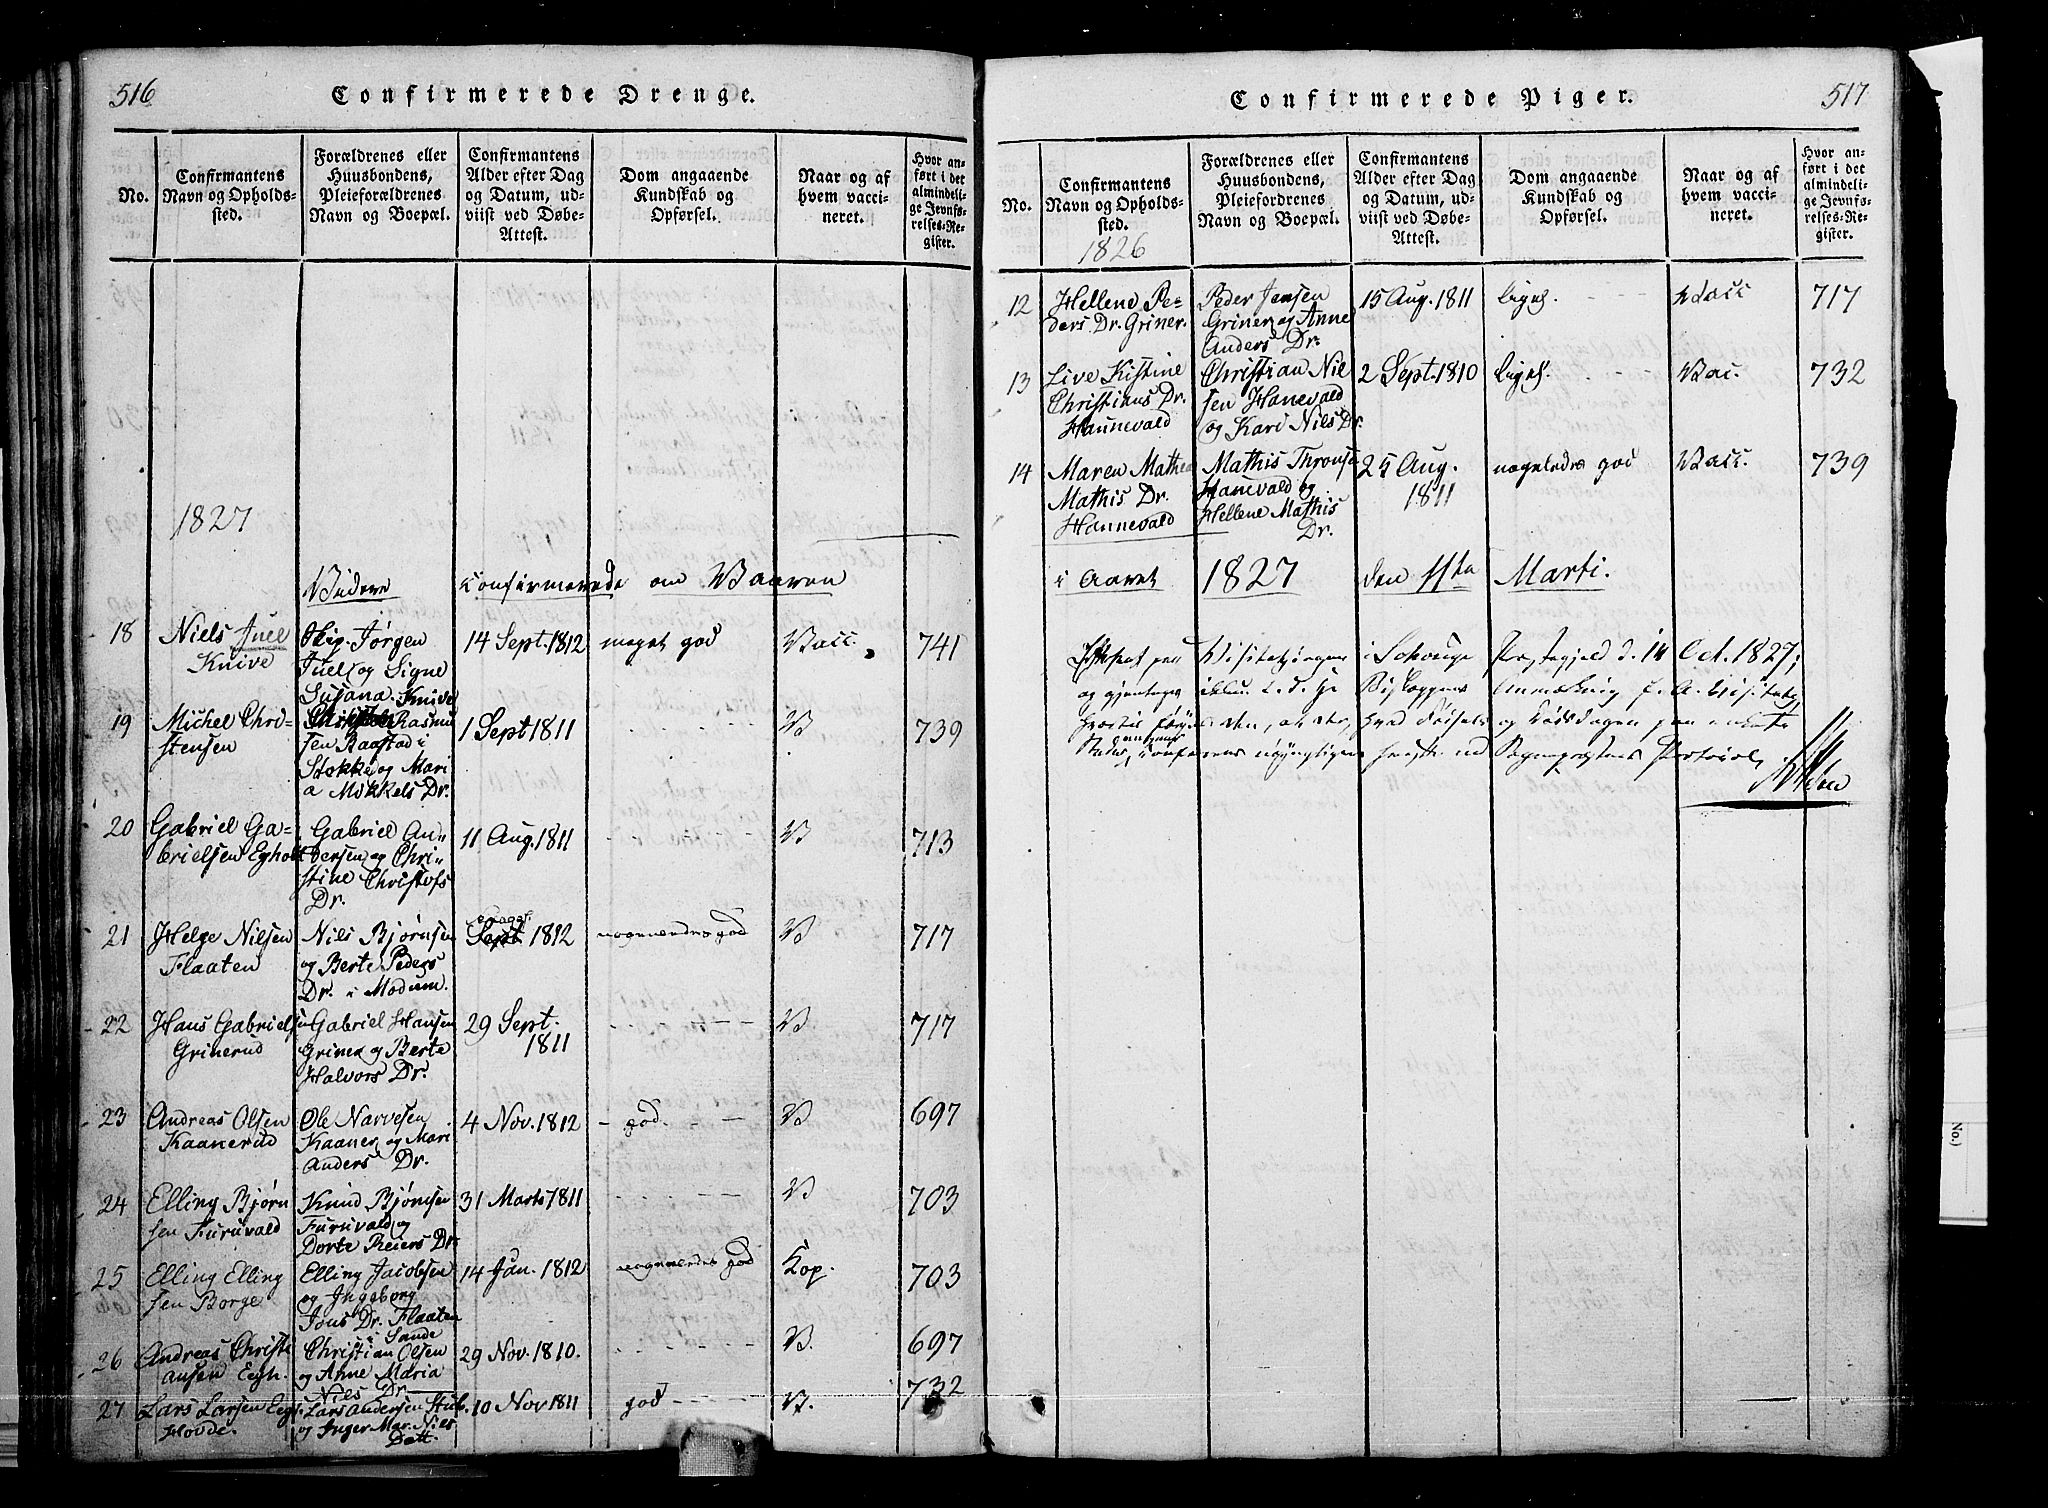 516
Confirmerede Drenge.
No.
Confirmantens
Navn og Opholds-
sted.
Forældrenes eller
Huusbondens,
Pleieforældrenes
Navn og Boepæl.
Confirmantens
Alder efter Dag
og Datum, ud-
viist ved Døbe-
Attest.
Dom angaaende
Kundskab og
Opførsel.
Naar og af
hvem vacci-
neret.
Hvor an-
ført i det
almindeli-
ge Jevnfø-
relses-Re-
gister.
1827
Videre Confirmerede om Vaaren
18
Niels Juel
Knive
Skip. Jørgen
Juel og Signe
Susana Knive
14 Sept. 1812
meget god
Vacc.
741
19
Michel Chri-
stensen
Rasmu
sen Raastad i
Stokke og Mari
a Mikkels Dr.
1 Sept 1811
V
739
20
Gabriel Ga-
brielsen Egholt
Gabriel An-
dersen og Chri-
stine Christofs
Dr.
11 Aug. 1811
V
713
21
Helge Nilsen
Flaaten
Nils Bjørnsen
og Berte Peders
Dr. i Modum.
Sept 1812
nogenledes god
V
717
22
Hans Gabrielsen
Grinerud
Gabriel Hansen
Griner og Berte
Halvors Dr.
29 Sept.
1811
V
717
23
Andreas Olsen
Kaanerud
Ole Narvesen
Kaaner og Mari
Anders Dr.
4 Nov. 1812
god
V
697
24
Elling Bjørn
sen Furuvald
Knud Bjørnsen
Furuvald og
Dorte Reiers Dr.
31 Marts 1811
V
703
25
Elling Elling
sen Borge
Elling Jacobsen
og Ingeborg
Jons Dr. Flaaten
i Sande
14 Jan. 1812
nogenledes god
Kop.
703
26
Andreas Christi
ansen Eegh.
Christian Olsen
og Anne Maria
Niels Dr.
29 Nov. 1810.
V.
697
27
Lars Larsen Eegh.
Hovde.
Lars Andersen Stub.
og Inger Mar. Niels
Datt.
10 Nov 1811
god
V.
732
517
Confirmerede Piger.
No.
Confirmantens
Navn og Opholds-
sted.
Forældrenes eller
Huusbondens,
Pleiefordrenes
Navn og Boepæl.
Confirmantens
Alder efter Dag
og Datum, ud-
viist ved Døbe-
Attest.
Dom angaaende
Kundskab og
Opførsel.
Naar og af
hvem vacci-
neret.
Hvor an-
ført i det
almindeli-
ge Jevnfø-
relses-Re-
gister.
1826
12
Hellene Pe-
ders Dr. Griner.
Peder Jensen
Griner og Anne
Anders Dr.
15 Aug. 1811
ligel.
Vacc
717
13
Live Kistine
Christians Dr.
Hannevald
Christian Nil
sen Hanevald
og Kari Nils Dr.
2 Sept. 1810
ligel.
Vac.
732
14
Maren Mathea
Mathis Dr.
Hannevald
Mathis Thronse
Hanevald og
Hellene Mathis
Dr.
25 Aug.
1811
nogeledes god
Vacc.
739
i Aaret 1827 den 11te Marti.
paa Visitatzen i Præstegjeld d. 14 Oct. 1827;
og gjentages Biskoppens Anmærkning
at der, hvad og Dødsdagen paa
Sognepræstens